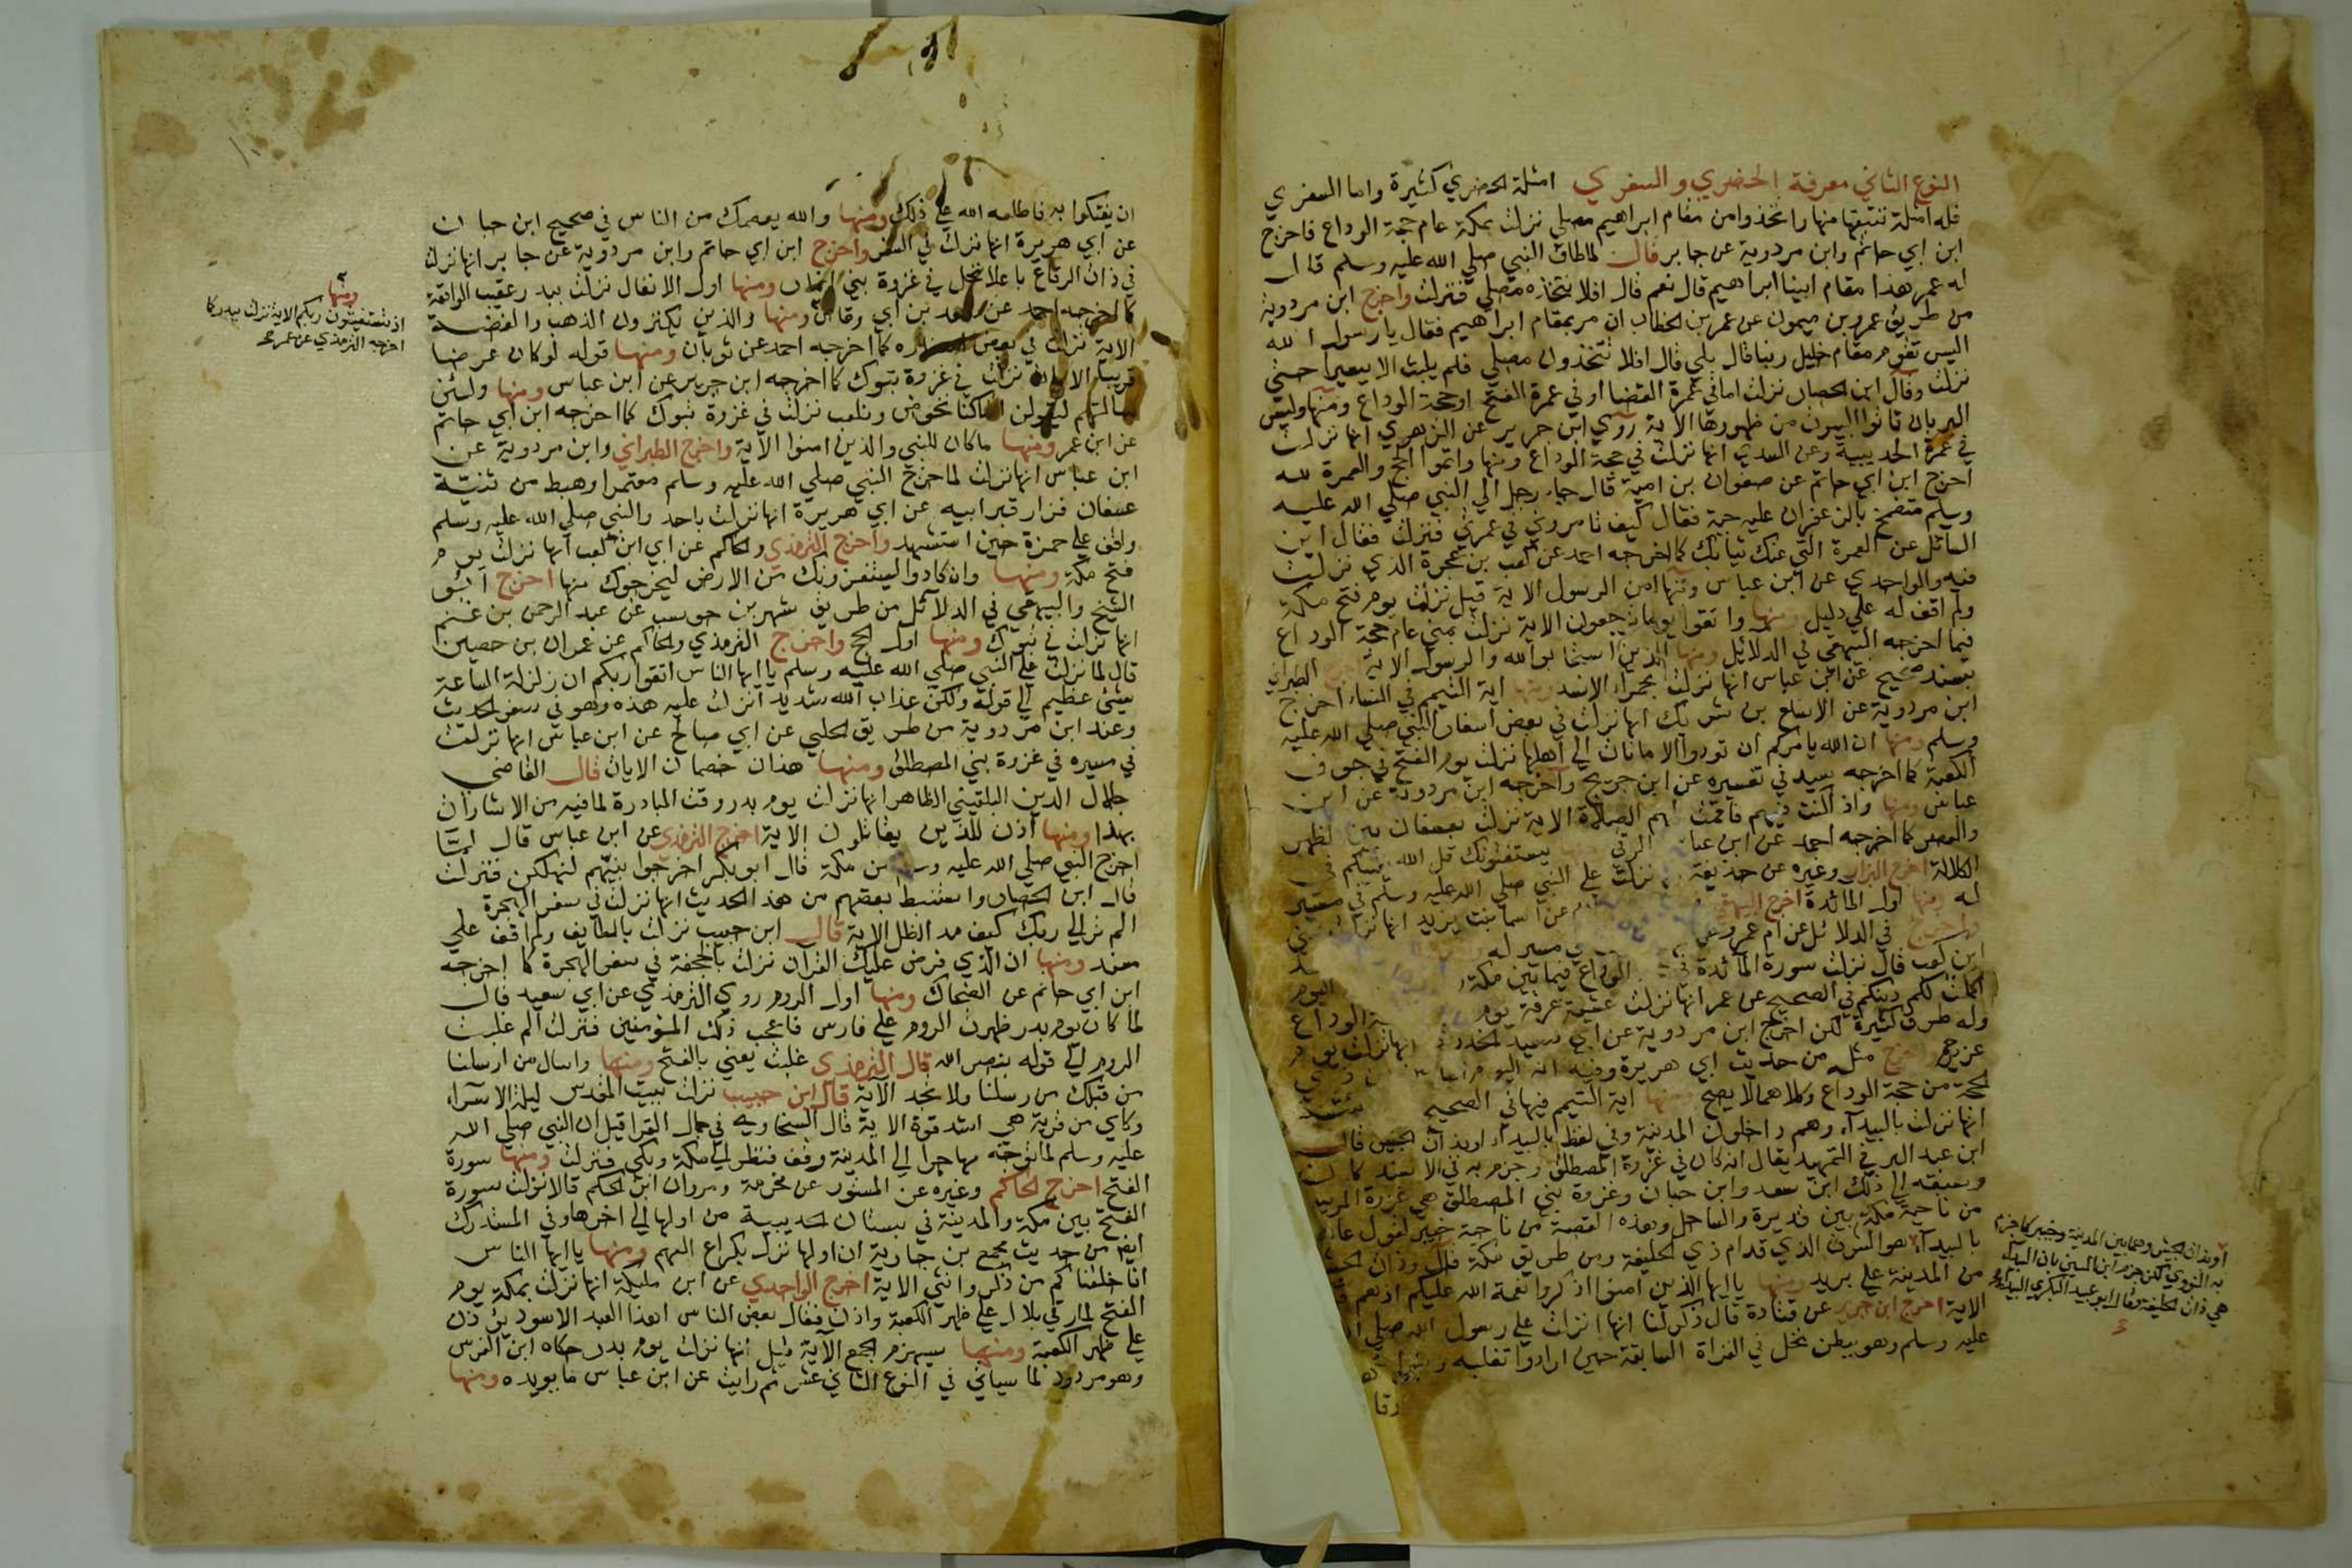 النوع الثاني معرفة الحضري والسفري امثلة الحضري كثيرة واما السفري
فله امثلة تتبعتها منها واتخذوا من مقام ابراهيم مصلي نزلت بمكة عام حجة الوداع فاخرج
ابن ابي حاتم وابن مردوية عن جابر قال لما طاف النبي صلي الله عليه وسلم قال
له عمر هذا مقام ابينا ابراهيم قال نعم قال افلا نتخذه مصلي فنزلت واخرج ابن مردوية
من طريق عمرو بن ميمون عن عمر بن الخطاب انه مر بمقام ابراهيم فقال يا رسول الله
اليس نقوم مقام خليل ربنا قال بلي قال افلا نتخذوه مصلي فلم يلبث الا يسيرا حتي
نزلت وقال ابن الحصار نزلت اما في عمرة القضا او في عمرة الفتح او حجة الوداع ومنها وليس
البر بان تاتوا البيوت من ظهورها الاية روي ابن جرير عن الزهري انها نزلت
في عمرة الحديبية وعن السدي انها نزلت في حجة الوداع ومنها واتموا الحج والعمرة لله
اخرج ابن ابي حاتم عن صفوان بن امية قال جاء رجل الي النبي صلي الله عليه
وسلم متضمخ بالزعفران عليه جبة فقال كيف تامروني في عمرتي فنزلت فقال اين
السائل عن العمرة الق عنك ثيابك كما اخرجه احمد عن كعب بن عجرة الذي نزلت
فيه والواحدي عن ابن عباس ومنها امن الرسول الاية قيل نزلت يوم فتح مكة
ولم اقف له علي دليل ومنها واتقوا يوما ترجعون الاية نزلت بمني عام حجة الوداع
فيما اخرجه البيهقي في الدلائل ومنها الذين استجابوا لله والرسول الاية اخرج الطبراني
بسند صحيح عن ابن عباس انها نزلت بحمراء الاسد ومنها اية التيمم في النساء اخرج
ابن مردوية عن الاسلع بن شريك انها نزلت في بعض اسفار النبي صلي الله عليه
وسلم ومنها ان الله يامركم ان تودوا الامانات الي اهلها نزلت يوم الفتح في جوف
الكعبة كما اخرجه سنيد في تفسيره عن ابن جريج واخرجه ابن مردوية عن ابن
عباس ومنها واذا كنت فيهم فاقمت لهم الصلاة الاية نزلت بعسفان بين الظهر
والعصر كما اخرجه احمد عن ابن عباس الزرقي ومنها يستفتونك قل الله يفتيكم في
الكلالة اخرج البزار وغيره عن حذيفة نزلت علي النبي صلي الله عليه وسلم في مسير
له ومنها اول المائدة اخرج البيهقي عن اسما بنت يزيد انها نزلت
واخرج في الدلائل عن ام عمرو في مسير له
ابن كعب قال نزلت سورة المائدة في الوداع فيما بين مكة
اكملت لكم دينكم في الصحيح عن عمر انها نزلت عشية عرفة يوم
وله طرق كثيرة لكن اخرج ابن مردوية عن ابي سعيد الخدري انها نزلت يوم
غدير واخرج مثله من حديث ابي هريرة وفيه انه اليوم
الحجة من حجة الوداع وكلاهما لا يصح ومنها اية التيمم فيها في الصحيح
انها نزلت بالبيداء وهم داخلون المدينة وفي لفظ بالبيداء او بذات الجيش قال
ابن عبد البر في التمهيد يقال انه كان في غزوة المصطلق وجزم به في الاستذكار
وسبقه الي ذلك ابن سعد وابن حبان وغزوة بني المصطلق هي غزوة المريسيع
من ناحية مكة بين قديرة والساحل وهذه القصة من ناحية خيبر لقول عا
بالبيداء هو الشرف الذي قدام ذي الحليفة ومن طريق مكة قال وذات الجيش
من المدينة علي بريد ومنها يا ايها الذين امنوا اذكروا نعمة الله عليكم اذ هم
الاية اخرج ابن جرير عن قتادة قال ذكر لنا انها انزلت علي رسول الله صلي ا
عليه وسلم وهو ببطن نخل في الغزاة السابقة حين ارادوا
او بذات الجيش وهما بين المدينة وخيبر كما جزم
به النووي لكن جزم ابن التين بان البيداء
هي ذات الحليفة وقال ابو عبيد البكري البيداء
ان يفتكوا به فاطلعه الله علي ذلك ومنها والله يعصمك من الناس في صحيح ابن حبان
عن ابي هريرة انها نزلت في السفر واخرج ابن ابي حاتم وابن مردوية عن جابر انها نزلت
في ذات الرقاع باعلا نخل في غزوة بني انمار ومنها اول الانفال نزلت ببدر عقب الواقعة
كما اخرجه احمد عن سعد بن ابي وقاص ومنها والذين يكنزون الذهب والفضة
الاية نزلت في بعض اسفاره كما اخرجه احمد عن ثوبان ومنها قوله لو كان عرضا
قريبا الايات نزلت في غزوة تبوك كما اخرجه ابن جرير عن ابن عباس ومنها ولئن
سالتهم ليقولن انما كنا نخوض ونلعب نزلت في غزوة تبوك كما اخرجه ابن ابي حاتم
عن ابن عمر ومنها ما كان للنبي والذين امنوا الاية واخرج الطبراني وابن مردوية عن
ابن عباس انها نزلت لما خرج النبي صلي الله عليه وسلم معتمرا وهبط من ثنية
عسفان فزار قبر ابيه عن ابي هريرة انها نزلت باحد والنبي صلي الله عليه وسلم
واقف علي حمزة حين استشهد واخرج الترمذي والحاكم عن ابي ابن كعب انها نزلت يوم
فتح مكة ومنها وان كادوا ليستفزونك من الارض ليخرجوك منها اخرج ابو
الشيخ والبيهقي في الدلائل من طريق شهر بن حوسب عن عبد الرحمن بن غنم
انها نزلت في تبوك ومنها اول الحج واخرج الترمذي والحاكم عن عمران بن حصين
قال لما نزلت علي النبي صلي الله عليه وسلم يا ايها الناس اتقوا ربكم ان زلزلة الساعة
شيئ عظيم الي قوله ولكن عذاب الله شديد انزلت عليه هذه وهو في سفر الحديث
وعند ابن مردوية من طريق الكلبي عن ابي صالح عن ابن عباس انها نزلت
في مسيره في غزوة بني المصطلق ومنها هذان خصمان الايات قال القاضي
جلال الدين البلقيني الظاهر انها نزلت يوم بدر وقت المبادرة لما فيه من الاشارة ان
بهذا ومنها اذن للذين يقاتلون الاية اخرج الترمذي عن ابن عباس قال لما
اخرج النبي صلي الله عليه وسلم من مكة قال ابو بكر اخرجوا نبيهم لنهلكن فنزلت
قال ابن الحصار واستنبط بعضهم من هذا الحديث انها نزلت في سفر الهجرة
الم تر الي ربك كيف مد الظل الاية قال ابن حبيب نزلت بالطايف ولم اقف علي
سند ومنها ان الذي فرض عليك القران نزلت بالجحفة في سفر الهجرة كما اخرجه
ابن ابي حاتم عن الضحاك ومنها اول الروم روي الترمذي عن ابي سعيد قال
لما كان يوم بدر ظهرت الروم علي فارس فاعجب ذلك المؤمنين فنزلت الم غلبت
الروم الي قوله بنصر الله قال الترمذي غلبت يعني بالفتح ومنها واسال من ارسلنا
من قبلك من رسلنا ولا نجد الاية قال ابن حبيب نزلت ببيت المقدس ليلة الاسراء
وكاي من قرية هي اشد قوة الاية قال السخاويه في جمال القرا قيل ان النبي صلي الله
عليه وسلم لما توجه مهاجرا الي المدينة وقف فنظر الي مكة وبكي فنزلت ومنها سورة
الفتح اخرج الحاكم وغيره عن المسور عن مخرمة ومروان ابن الحكم قالا نزلت سورة
الفتح بين مكة والمدينة في بستان الحديبية من اولها الي اخرها وفي المستدرك
ايضا من حديث مجمع بن جارية ان اولها نزل بكراع الغميم ومنها يا ايها الناس
انا خلقناكم من ذكر وانثي الاية اخرج الواحدي عن ابن مليكة انها نزلت بمكة يوم
الفتح لما رقي بلال علي ظهر الكعبة واذن فقال بعض الناس اهذا العبد الاسود يئوذن
علي ظهر الكعبة ومنها سيهزم الجمع الاية قيل انها نزلت يوم بدر حكاه ابن الفرس
وهو مردود لما سياتي في النوع الثاني عشر ثم رايت عن ابن عباس ما يويده ومنها
ومنها
اذ تستغيثون ربكم الاية نزلت ببدر كما
اخرجه الترمذي عن عمر